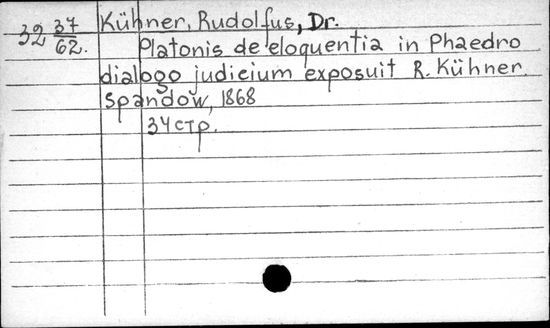 32 37/62. Kühner, Rudolfus, Dr.
Platonis de eloquentia in Phaedro
dialogo judicium exposuit R. Kühner.
Spandow, 1868
34 стр.